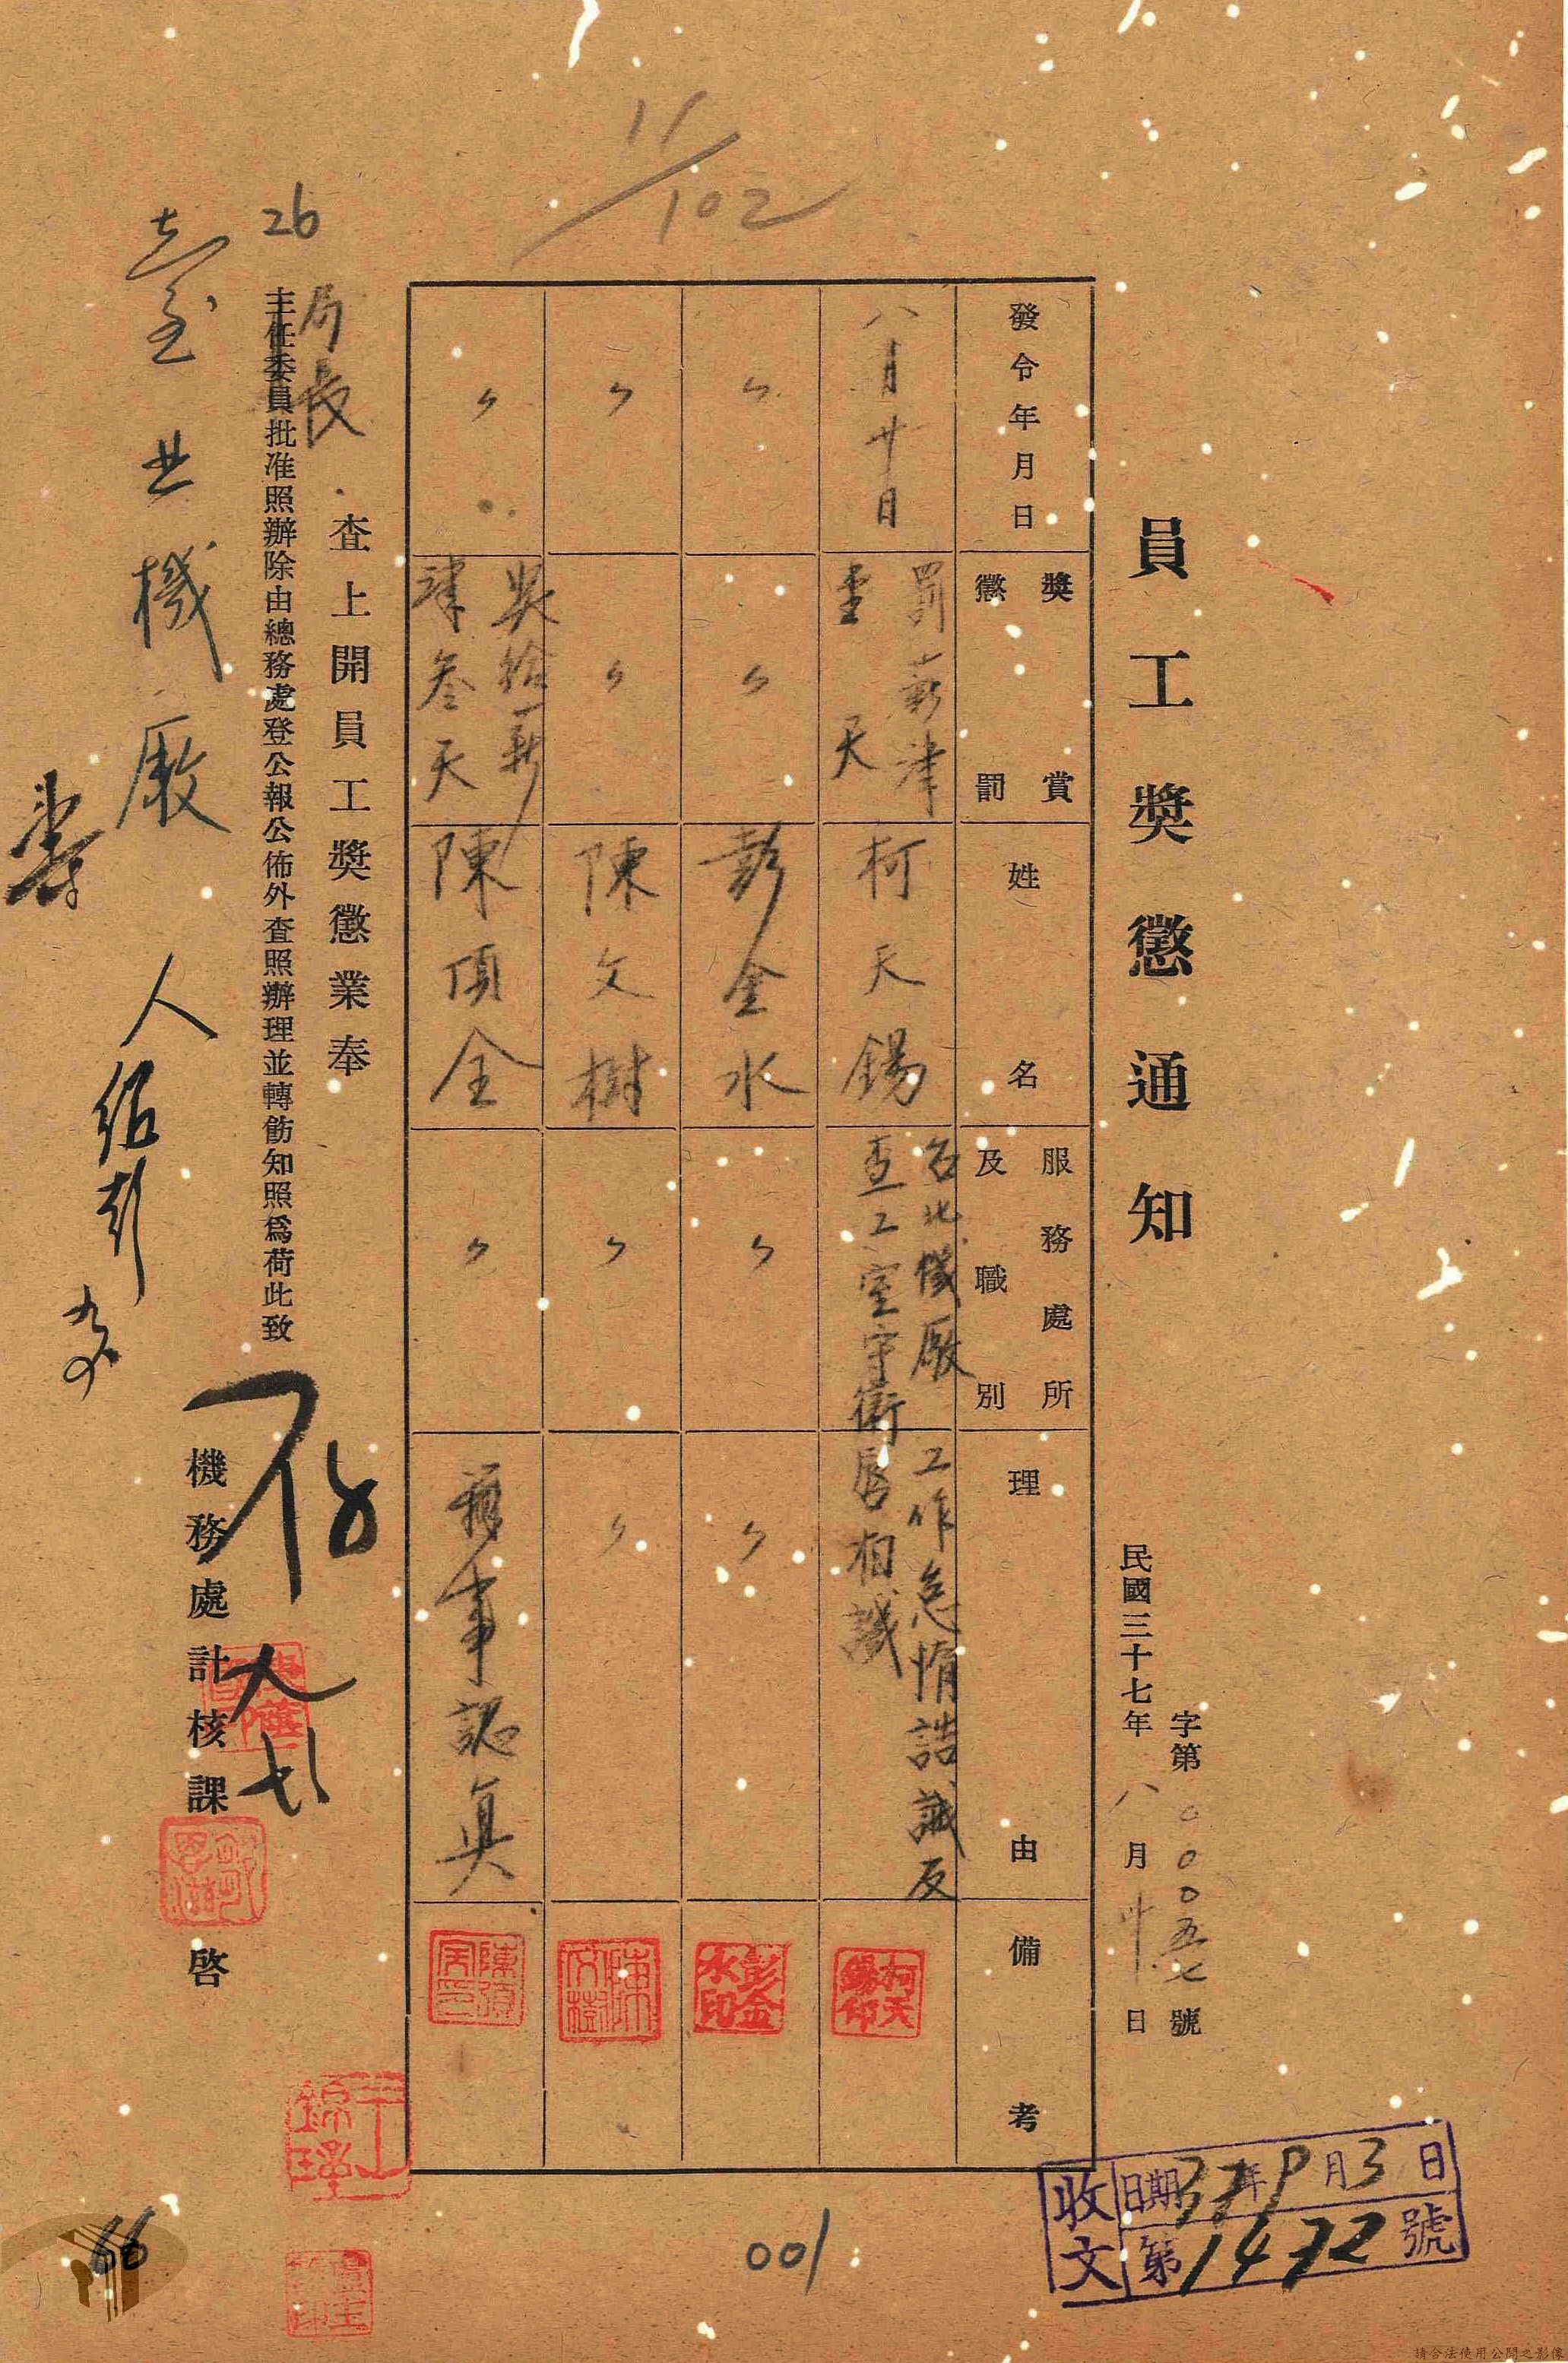 11/102
員工獎懲通知
字第〇〇〇五七號
民國三十七年八月卅日
發令年月日
獎賞
懲罰
姓名
服務處所
及職別
理由
備考
八月廿日
罰薪津
壹天
柯天錫
台北機廠
查工室守衛
工作怠惰誥誡反
唇相譏
柯天錫印
〃
〃
彭金水
〃
〃
彭金水印
〃
〃
陳文樹
〃
〃
陳文樹
〃
獎給薪
津叁天
陳頂全
〃
事認真
查上開員工獎懲業奉
局長
主任委員批准照辦除由總務處登公報公佈外查照辦理並轉飭知照爲荷此致
26
北機廠
人
機務處計核課
啓
收文
日期37年9月3日
第1432號
001
66
請合法使用公開之影像